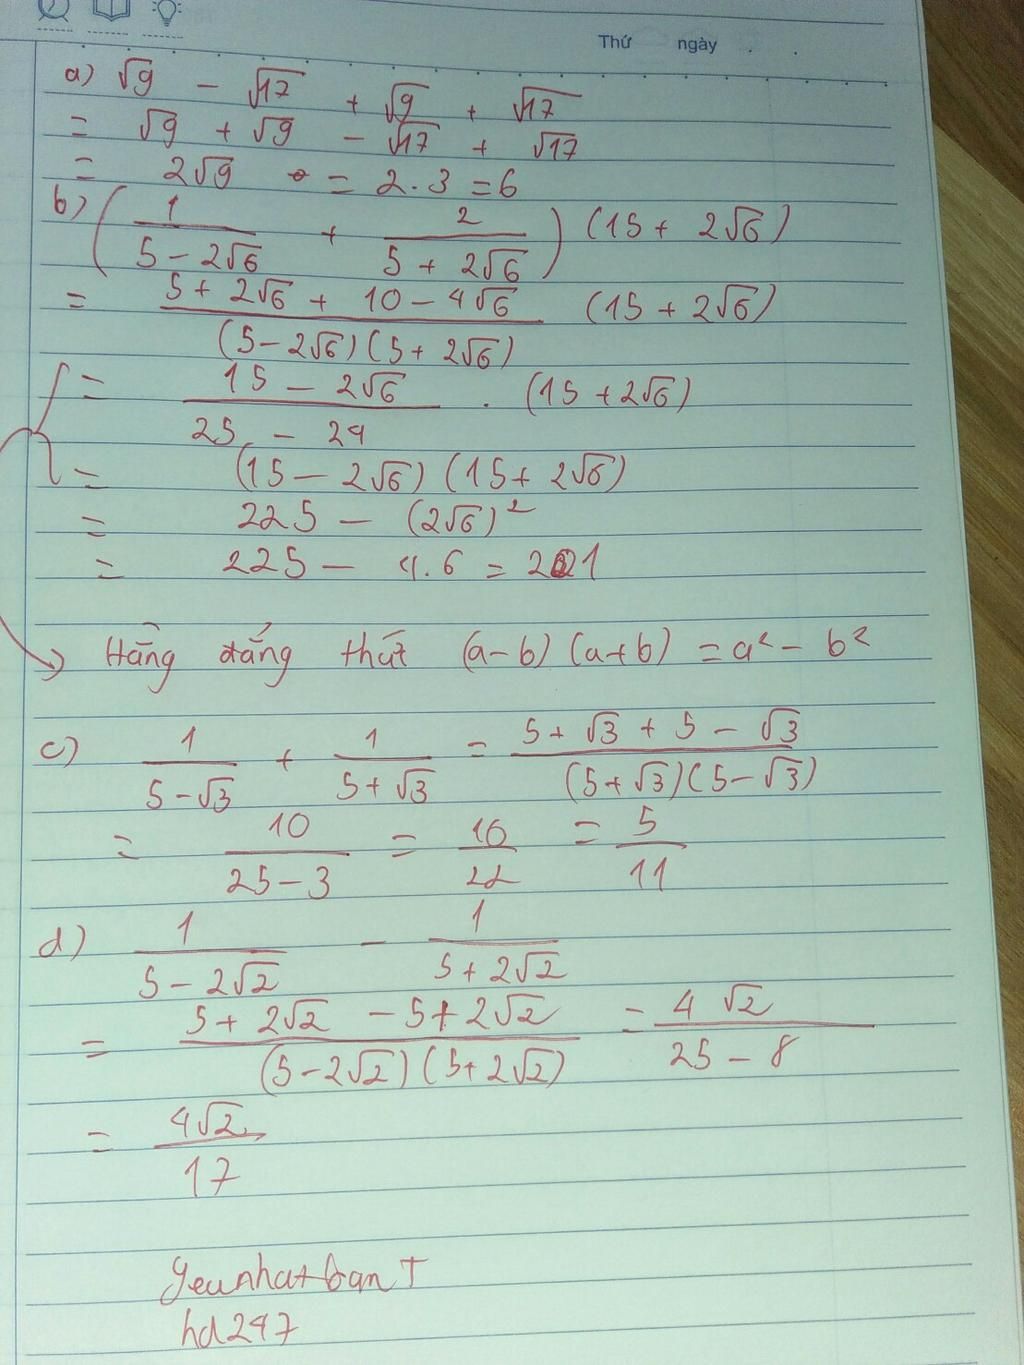 Thứ ngày . .
a) √9 - √17 + √9 + √17
= √9 + √9 - √17 + √17
= 2√9 = 2.3 = 6
b) (1/(5 - 2√6) + 2/(5 + 2√6)) (15 + 2√6)
= (5 + 2√6 + 10 - 4√6)/((5 - 2√6)(5 + 2√6)) (15 + 2√6)
= (15 - 2√6)/(25 - 24) . (15 + 2√6)
= (15 - 2√6) (15 + 2√6)
= 225 - (2√6)²
= 225 - 4.6 = 201
→ Hằng đẳng thức (a-b) (a+b) = a² - b²
c) 1/(5 - √3) + 1/(5 + √3) = (5 + √3 + 5 - √3)/((5 + √3)(5 - √3))
= 10/(25 - 3) = 10/22 = 5/11
d) 1/(5 - 2√2) - 1/(5 + 2√2)
= (5 + 2√2 - 5 + 2√2)/((5 - 2√2)(5 + 2√2)) = 4√2/(25 - 8)
= 4√2/17
yeunhatbanT
hd247